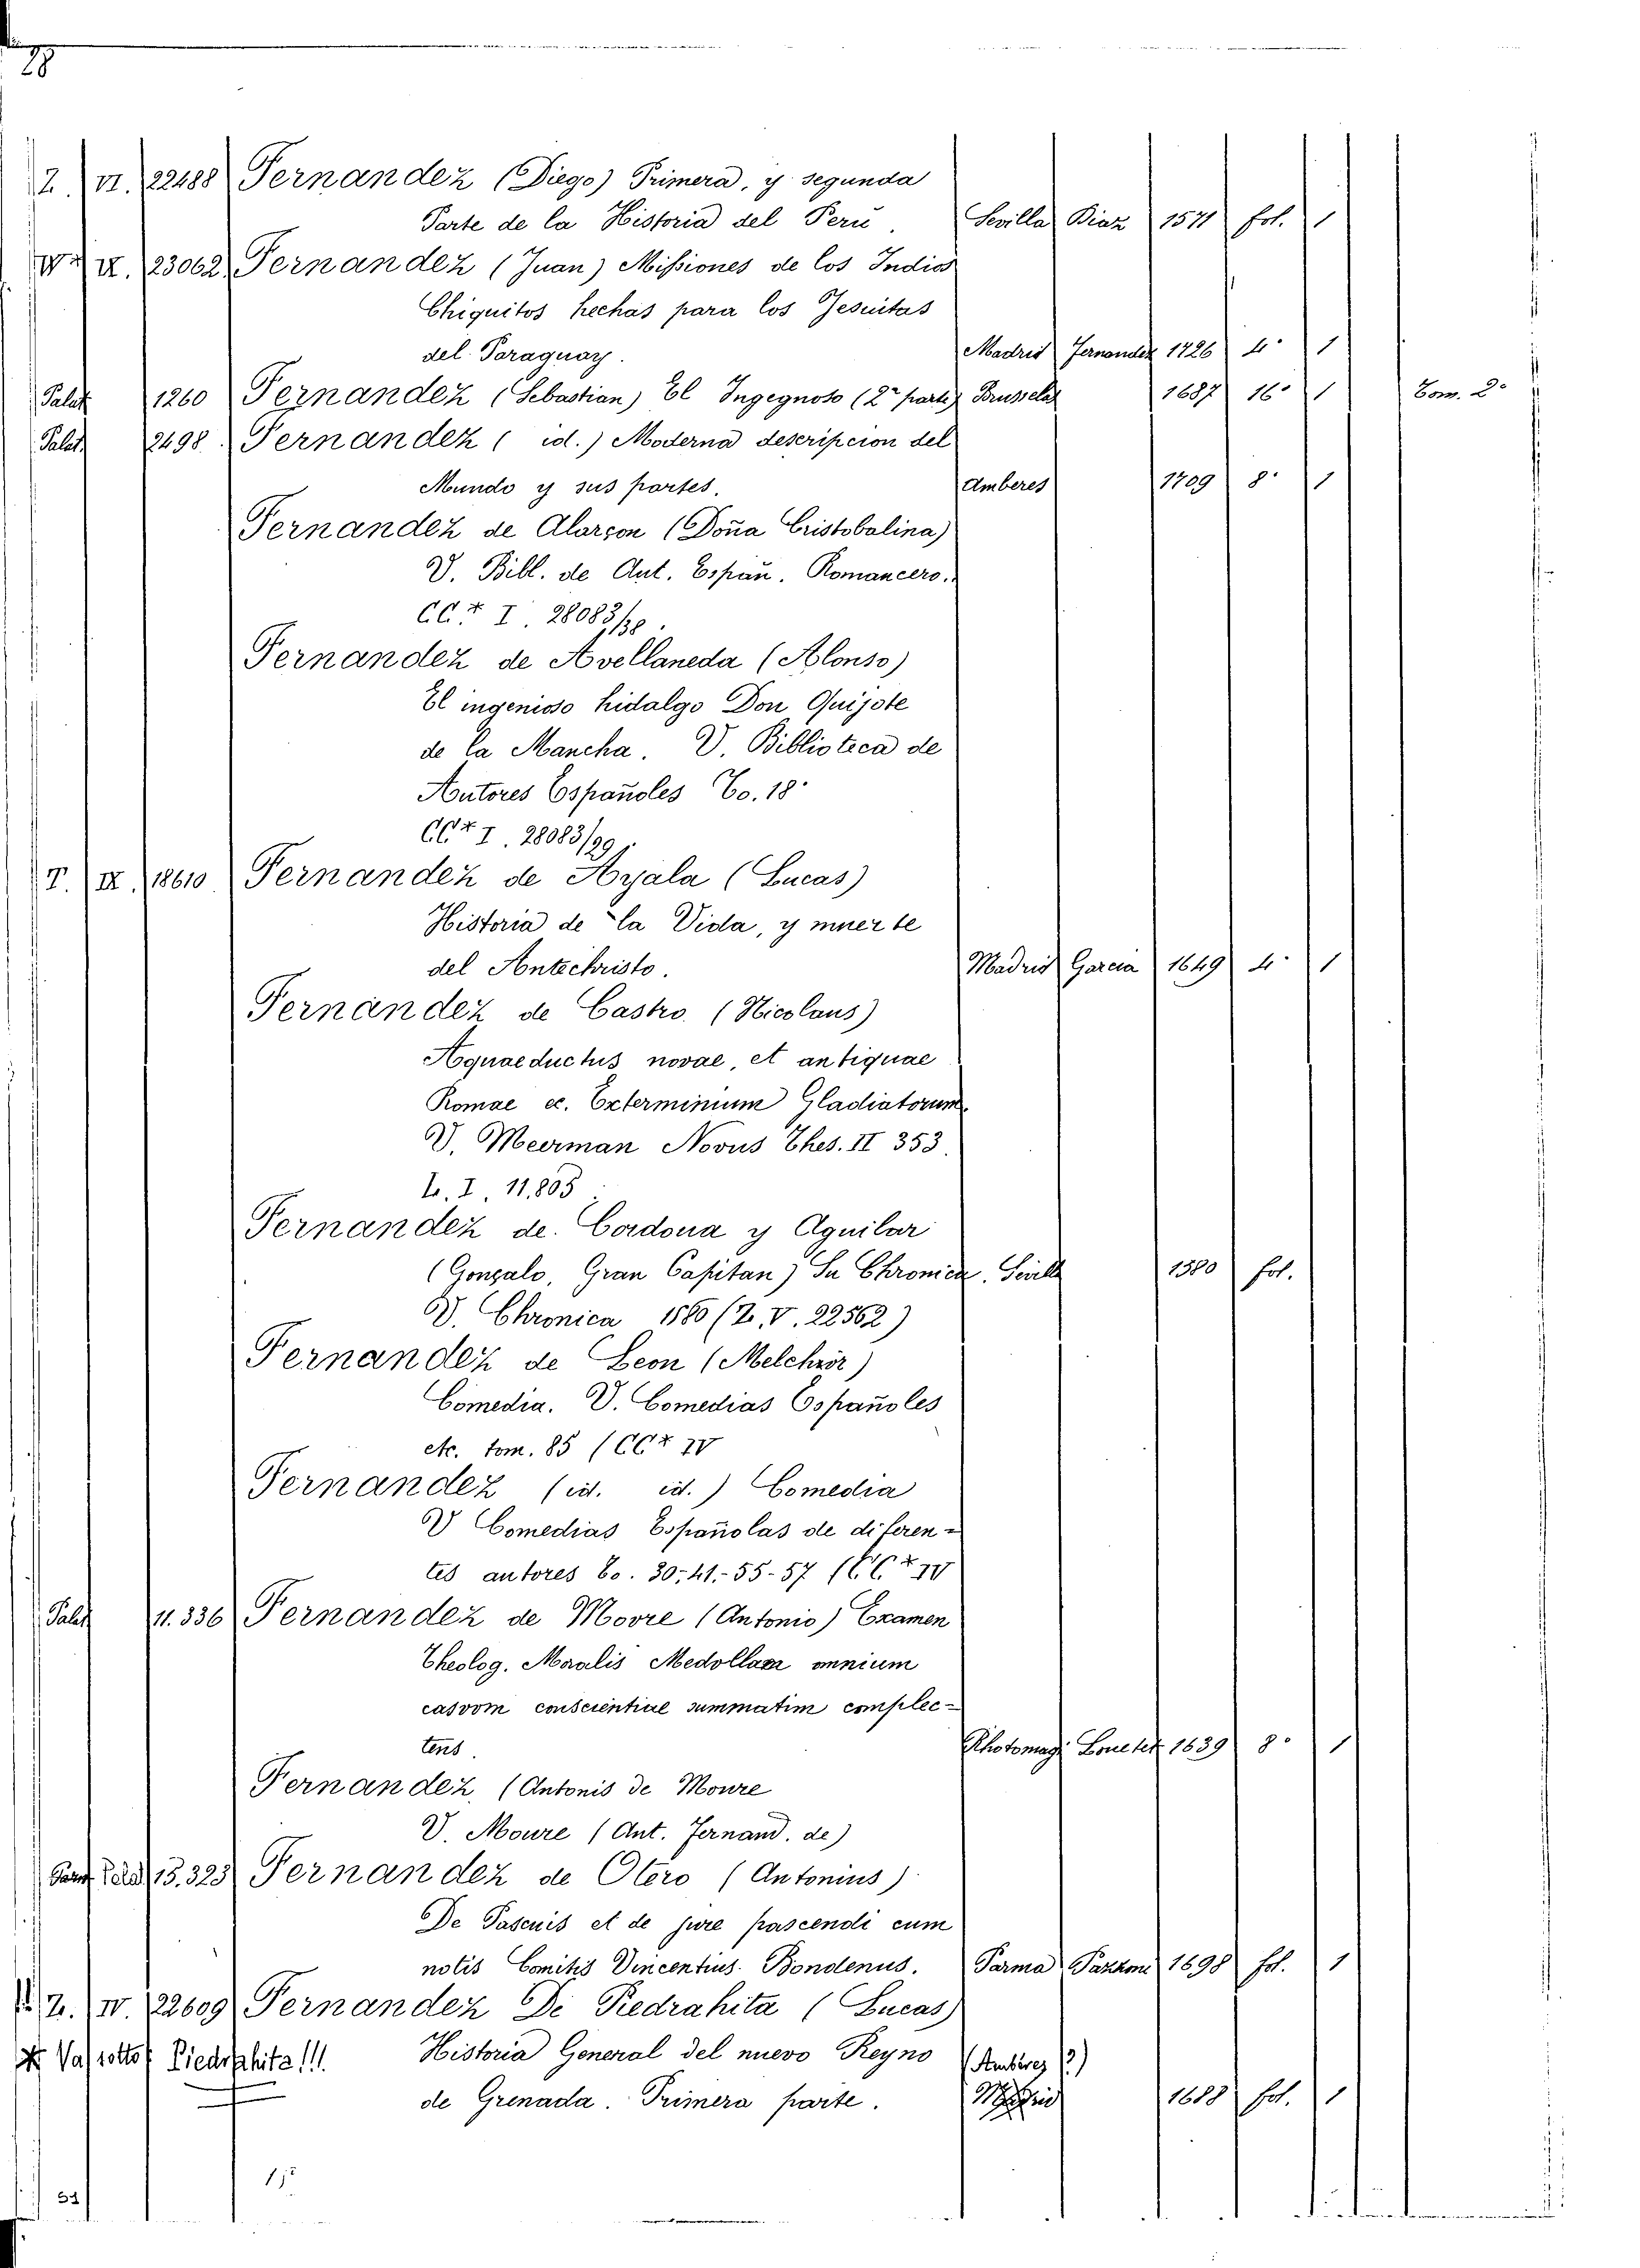 28
Z. VI. 22488 Fernandez (Diego) Primera, y segunda
Parte de la Historia del Peru. Sevilla Diaz 1571 fol. 1
IX. 23062 Fernandez (Juan) Missiones de los Indios
Chiquitos hechas para los Jesuitas
del Paraguay. Madrid Fernandez 1726 4° 1
Palat 1260 Fernandez (Sebastian) El Ingegnoso (2ª parte) Brusselas 1687 16° 1 Tom. 2°
Palat. 2498. Fernandez (id.) Moderna descripcion del
Mundo y sus partes. Amberes 1709 8° 1
Fernandez de Alarçon (Doña Cristobalina)
V. Bibl. de Aut. Españ. Romancero.
CC* I. 28083/38.
Fernandez de Avellaneda (Alonso)
El ingenioso hidalgo Don Quijote
de la Mancha. V. Biblioteca de
Autores Españoles To. 18°
CC* I. 28083/29.
T. IX. 18610 Fernandez de Ayala (Lucas)
Historia de la Vida, y muerte
del Antechristo. Madrid Garcia 1649 4° 1
Fernandez de Castro (Nicolaus)
Aquaeductus novae, et antiquae
Romae ec. Exterminium Gladiatorum
V. Meerman Novus Thes. II 353.
L. I. 11.805.
Fernandez de Cordona y Aguilar
(Gonzalo, Gran Capitan) Su Chronica. Sevilla 1580 fol.
V. Chronica 1580 (Z. V. 22562)
Fernandez de Leon (Melchiór)
Comedia. V. Comedias Españoles
etc. tom. 85 (CC* IV
Fernandez (id. id.) Comedia
V Comedias Españolas de diferen-
tes autores to. 30.-41.-55-57 (CC* IV
Palat 11.336 Fernandez de Movre (Antonio) Examen
Theolog. Moralis Medollam omnium
casvom conscientiae summatim complec-
tens. Rhotomagi Loucter 1639 8° 1
Fernandez, (Antonis de Moure
V. Moure (Ant. Fernand. de)
15.323 Fernandez de Otero (Antonius)
De Pascuis et de jure pascendi cum
notis Comitis Vincentius Bondenus. Parma Pazzoni 1698 fol. 1
Z. IV. 22609 Fernandez De Piedrahita (Lucas)
Va sotto Piedrahita!!! Historia General del nuevo Reyno (Amberes?)
de Grenada. Primera parte. Madrid 1688 fol. 1